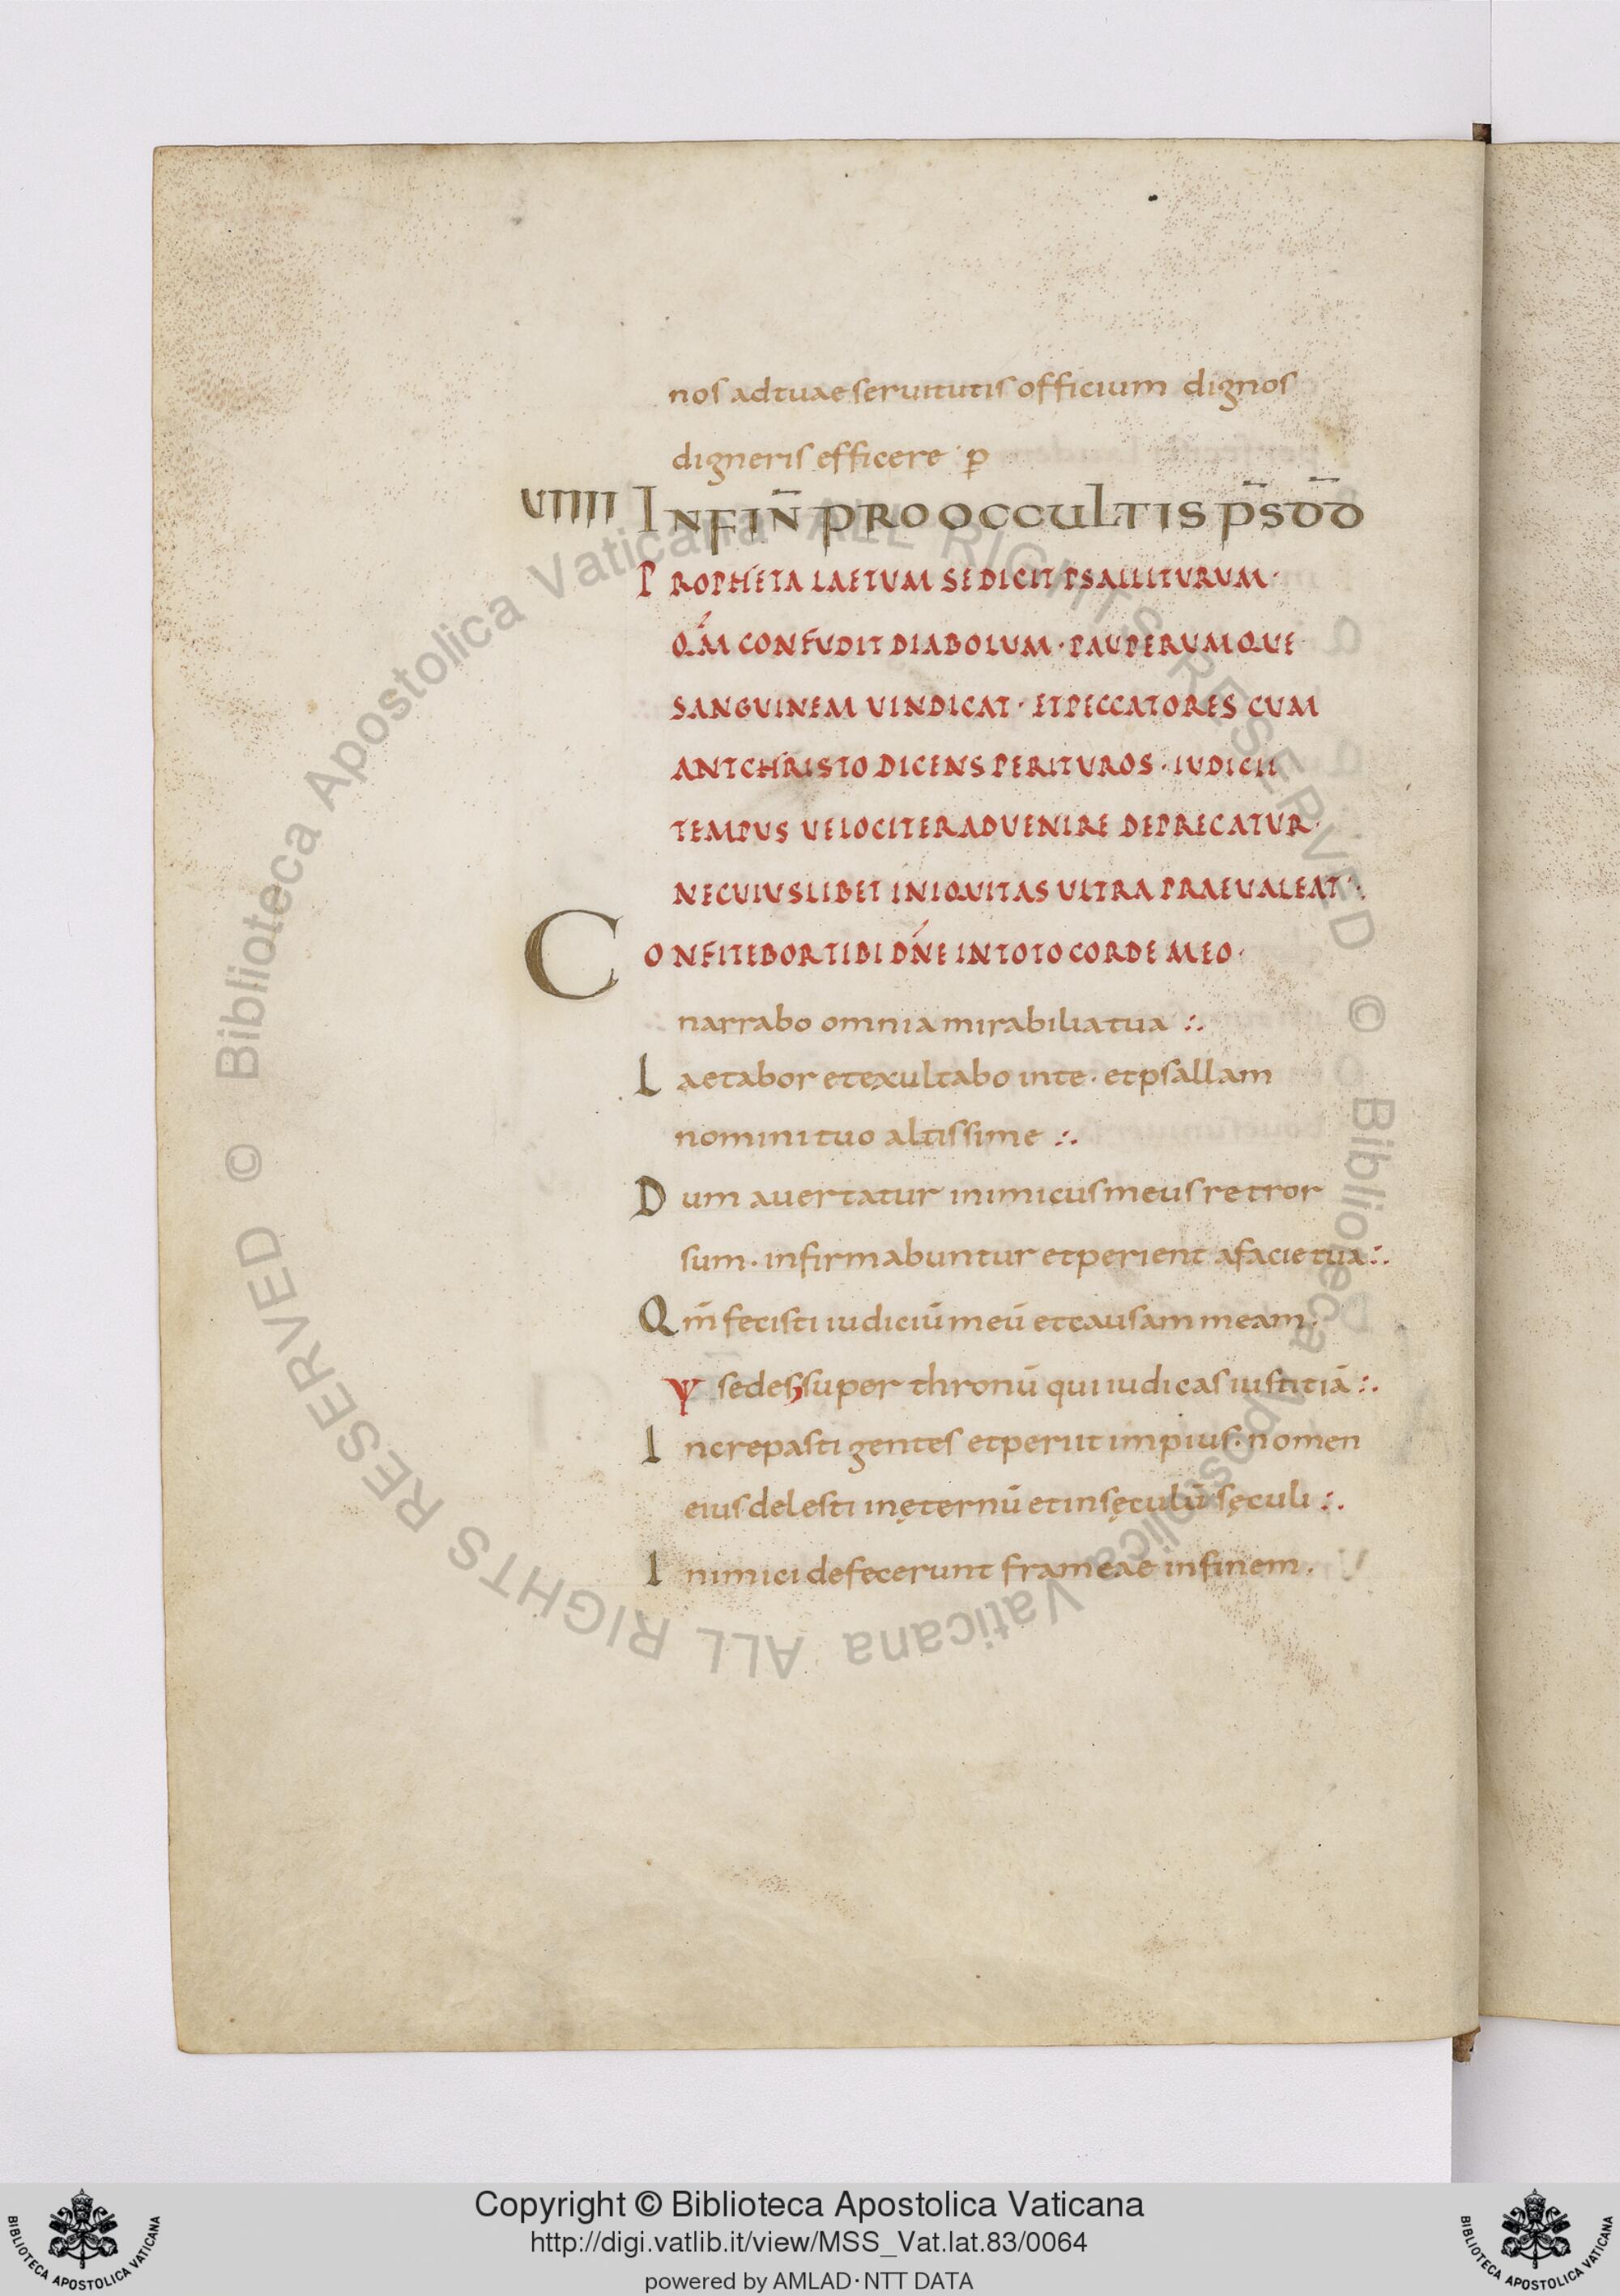 nos ad tuae seruitutis officium dignos
digneris efficere · p̲
VIIII INFIN̄ PRO OCCULTIS P̄S D̄D
PROPHETA LAETUM SE DICIT PSALLITURUM·
QM̄ CONFUDIT DIABOLUM · PAUPERUMQUE
SANGUINEM UINDICAT · ET PECCATORES CUM
ANTCHRISTO DICENS PERITUROS · IUDICII
TEMPUS UELOCITER ADUENIRE DEPRECATUR·
NECUIUSLIBET INIQUITAS ULTRA PRAEUALEAT :·
CONFITEBOR TIBI DN̄E IN TOTO CORDE MEO·
narrabo omnia mirabilia tua :·
Laetabor et exultabo in te · et psallam
nomini tuo altissime :·
Dum auertatur inimicus meus retror
sum · infirmabuntur et perient a facie tua :·
Qm̄ fecisti iudiciū meū et causam meam·
Ψ sedes super thronū qui iudicas iustitiā :·
Increpasti gentes et periit impius · nomen
eius delesti in ęternū et in sęculū sęculi :·
Inimici defecerunt frameae in finem ·
© Biblioteca Apostolica Vaticana ALL RIGHTS RESERVED © Biblioteca Apostolica Vaticana ALL RIGHTS RESERVED
Copyright © Biblioteca Apostolica Vaticana
http://digi.vatlib.it/view/MSS_Vat.lat.83/0064
powered by AMLAD·NTT DATA
BIBLIOTECA APOSTOLICA VATICANA
BIBLIOTECA APOSTOLICA VATICANA